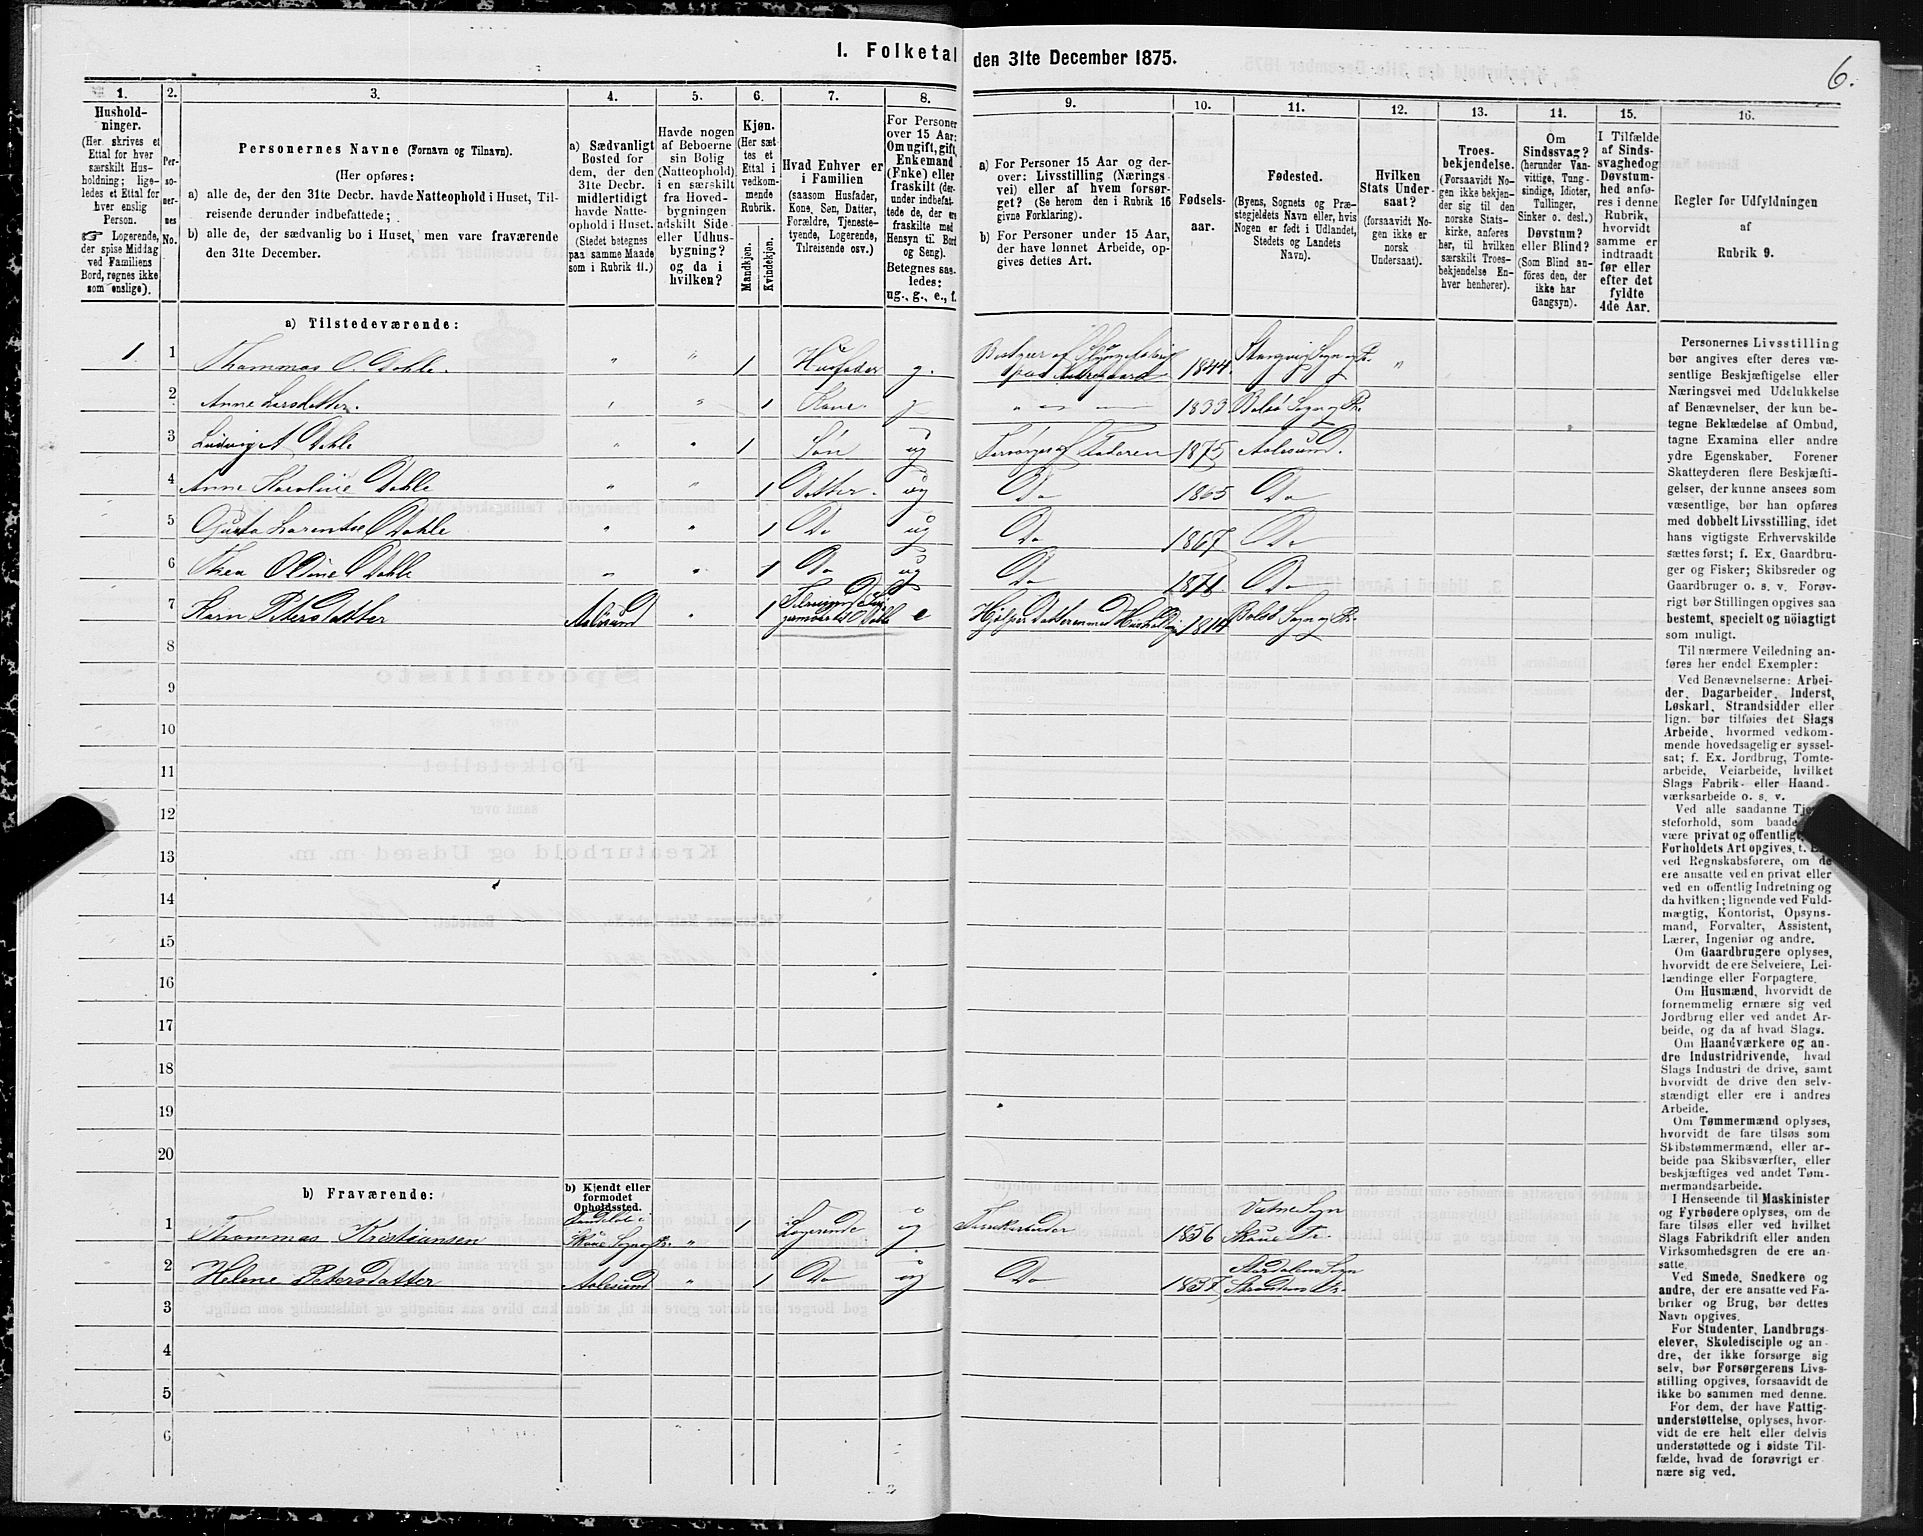 1. Folketal den 31te December 1875.
6.
1.
Hushold-
ninger.
(Her skrives et
Ettal for hver
særskilt Hus-
holdning; lige-
ledes et Ettal for
hver enslig
Person.
☞ Logerende,
der spise Middag
ved Familiens
Bord, regnes ikke
som enslige).
2.
Per-
so-
ner-
nes
No.
3.
Personernes Navne (Fornavn og Tilnavn).
(Her opføres:
a) alle de, der den 31te Decbr. havde Natteophold i Huset, Til-
reisende derunder indbefattede;
b) alle de, der sædvanlig bo i Huset, men vare fraværende
den 31te December.
4.
a) Sædvanligt
Bosted for
dem, der den
31te Decbr.
midlertidigt
havde Natte-
ophold i Huset.
(Stedet betegnes
paa samme Maade
som i Rubrik 11.)
5.
Havde nogen
af Beboerne
sin Bolig
(Natteophold)
i en særskilt
fra Hoved-
bygningen
adskilt Side-
eller Udhus-
bygning?
og da i
hvilken?
6.
Kjøn.
(Her sæt-
tes et
Ettal i
vedkom-
mende
Rubrik.
Mandkjøn.
Kvindekjøn.
7.
Hvad Enhver er
i Familien
(saasom Husfader,
Kone, Søn, Datter,
Forældre, Tjeneste-
tyende, Logerende,
Tilreisende osv.)
8.
For Personer
over 15 Aar:
Om ugift, gift,
Enkemand
(Enke) eller
fraskilt (der-
under indbefat-
tede de, der er
fraskilte med
Hensyn til Bord
og Seng).
Betegnes saa-
ledes:
ug., g., e., f.
9.
a) For Personer 15 Aar og der-
over: Livsstilling (Nærings-
vei) eller af hvem forsør-
get? (Se herom den i Rubrik 16
givne Forklaring).
b) For Personer under 15 Aar,
der have lønnet Arbeide, op-
gives dettes Art.
10.
Fødsels-
aar.
11.
Fødested.
(Byens, Sognets og Præ-
stegjeldets Navn eller, hvis
Nogen er født i Udlandet,
Stedets og Landets
Navn).
12.
Hvilken
Stats Under-
saat?
(forsaavidt No-
gen ikke er
norsk
Undersaat).
13.
Troes-
bekjendelse.
(Forsaavidt No-
gen ikke bekjen-
der sig til den
norske Stats-
kirke, anføres
her, til hvilken
særskilt Troes-
bekjendelse En-
hver henhører).
14.
Om
Sindssvag?
(herunder Van-
vittige, Tung-
sindige, Idioter,
Tullinger,
Sinker o. desl.)?
Døvstum?
eller Blind?
(Som Blind an-
føres den, der
ikke har
Gangsyn).
15.
I Tilfælde
af Sinds-
svaghed og
Døvstum-
hed anfø-
res i denne
Rubrik,
hvorvidt
samme er
indtraadt
før eller
efter det
fyldte
4de Aar.
16.
Regler for Udfyldningen
af
Rubrik 9.
a) Tilstedeværende:
1 1 Thommas O. Dahle. " " 1 Husfader g. Bestyrer af paa 1844. Stangvig Sogn og Pr. "
2 Anne Larsdatter. " " 1 Kone. g " 1833 Bolsø Sogn og Pr.
3 Ludvig A Dahle " " 1 Søn ug Forsørges af Faderen 1875 Aalesund.
4 Anne Karoline Dahle " " 1 Datter. ug Do 1865 Do
5 Gusta Larentse Dahle " " 1 Do ug Do 1867 Do
6 Thea Oldine Dahle " " 1 Do ug Do 1871 Do
7 Karn Petersdatter Aalesund " 1 O Dahle e Hjelper Datteren med Husholdnig 1814 Bolsø Sogn og Pr.
8
9
10
11
12
13
14
15
16
17
18
19
20
b) Fraværende:
b) Kjendt eller
formodet
Opholdssted.
1 Thommas Kristiansen Skoue Sogn og Pr. " 1 Logerende ug 1856 Vatne Sogn Skoue Pr.
2 Helene Petersdatter Aalesund " 1 Do ug Do 1857 Sogn Pr.
3
4
5
6
Personernes Livsstilling
bør angives efter deres væ-
sentlige Beskjæftigelse eller
Næringsvei med Udelukkelse
af Benævnelser, der kun be-
tegne Beklædelse af Ombud,
tagne Examina eller andre
ydre Egenskaber. Forener
Skatteyderen flere Beskjæfti-
gelser, der kunne ansees som
væsentlige, bør han opføres
med dobbelt Livsstilling, idet
hans vigtigste Erhvervskilde
sættes først; f. Ex. Gaardbru-
ger og Fisker; Skibsreder og
Gaardbruger o. s. v. Forøv-
rigt bør Stillingen opgives saa
bestemt, specielt og nöiagtigt
som muligt.
Til nærmere Veiledning an-
føres her endel Exempler:
Ved Benævnelserne: Arbei-
der, Dagarbeider, Inderst,
Løskarl, Strandsidder eller
lign. bør tilføies det Slags
Arbeide, hvormed vedkom-
mende hovedsagelig er syssel-
sat; f. Ex. Jordbrug, Tomte-
arbeide, Veiarbeide, hvilket
Slags Fabrik- eller Haand-
værksarbeide o. s. v.
Ved alle saadanne
steforhold, som baade
være privat og offentligt
Forholdets Art opgives,
ved Regnskabsførere, om de
ere ansatte ved en privat eller
ved en offentlig Indretning og
da hvilken; lignende ved Fuld-
mægtig, Kontorist, Opsyns-
mand, Forvalter, Assistent,
Lærer, Ingeniør og andre.
Om Gaardbrugere oplyses,
hvorvidt de ere Selveiere, Lei-
lændinge eller Forpagtere.
Om Husmænd, hvorvidt de
fornemmelig ernære sig ved
Jordbrug eller ved andet Ar-
beide, og da af hvad Slags.
Om Haandværkere og an-
dre Industridrivende, hvad
Slags Industri de drive, samt
hvorvidt de drive den selv-
stændigt eller ere i andres
Arbeide.
Om Tømmermænd oplyses,
hvorvidt de fare tilsøs som
Skibstømmermænd, eller ar-
beide paa Skibsværfter, eller
beskjæftiges ved andet Tøm-
mermandsarbeide.
I Henseende til Maskinister
og Fyrbødere oplyses, om de
fare tilsøs eller ved hvilket
Slags Fabrikdrift eller anden
Virksomhedsgren de ere an-
satte.
Ved Smede, Snedkere og
andre, der ere ansatte ved Fa-
briker og Brug, bør dettes
Navn opgives.
For Studenter, Landbrugs-
elever, Skoledisciple og an-
dre, der ikke forsørge sig
selv, bør Forsørgerens Livs-
stilling opgives, forsaavidt de
ikke bo sammen med denne.
For dem, der have Fattig-
understøttelse, oplyses, hvor-
vidt de ere helt eller delvis
understøttede og i sidste Til-
fælde, hvad de forøvrigt er-
nære sig ved.